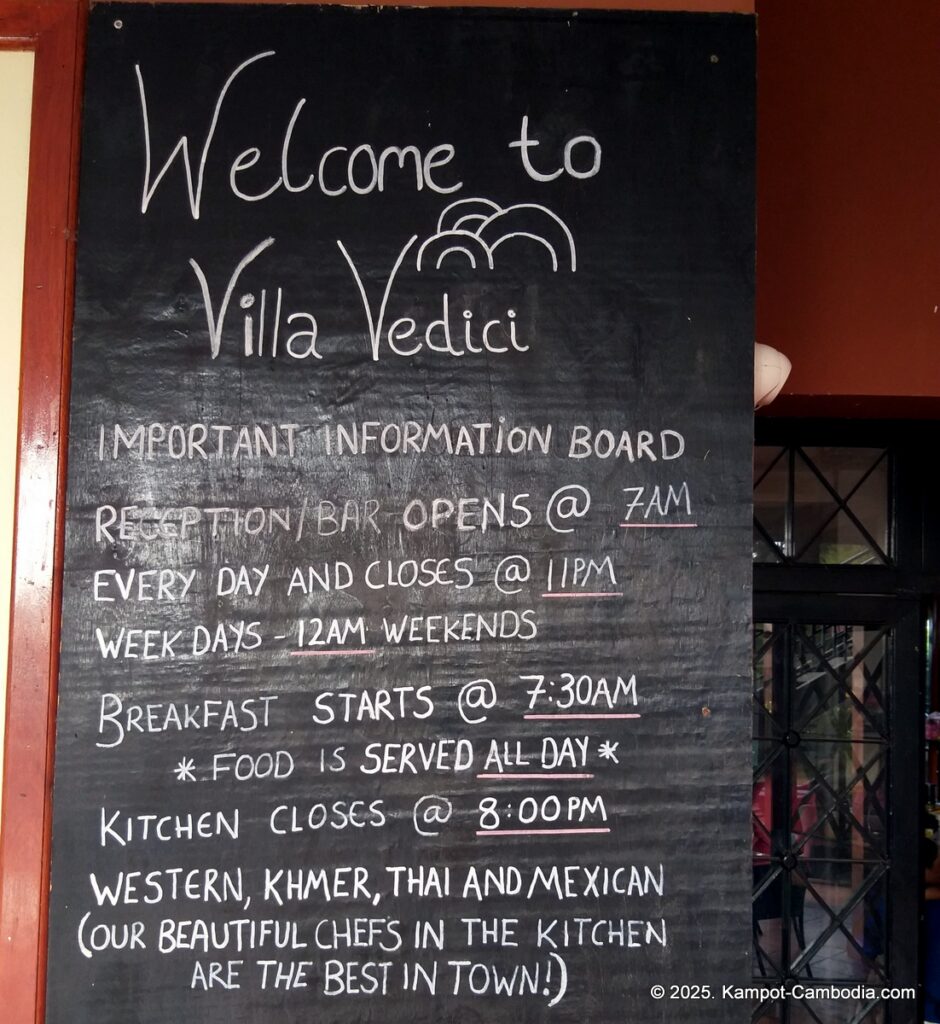 Welcome to
Villa Vedici
IMPORTANT INFORMATION BOARD
RECEPTION/BAR OPENS @ 7AM
EVERY DAY AND CLOSES @ 11PM
WEEK DAYS - 12AM WEEKENDS
BREAKFAST STARTS @ 7:30AM
* FOOD IS SERVED ALL DAY *
KITCHEN CLOSES @ 8:00PM
WESTERN, KHMER, THAI AND MEXICAN
(OUR BEAUTIFUL CHEFS IN THE KITCHEN
ARE THE BEST IN TOWN!)
© 2025. Kampot-Cambodia.com